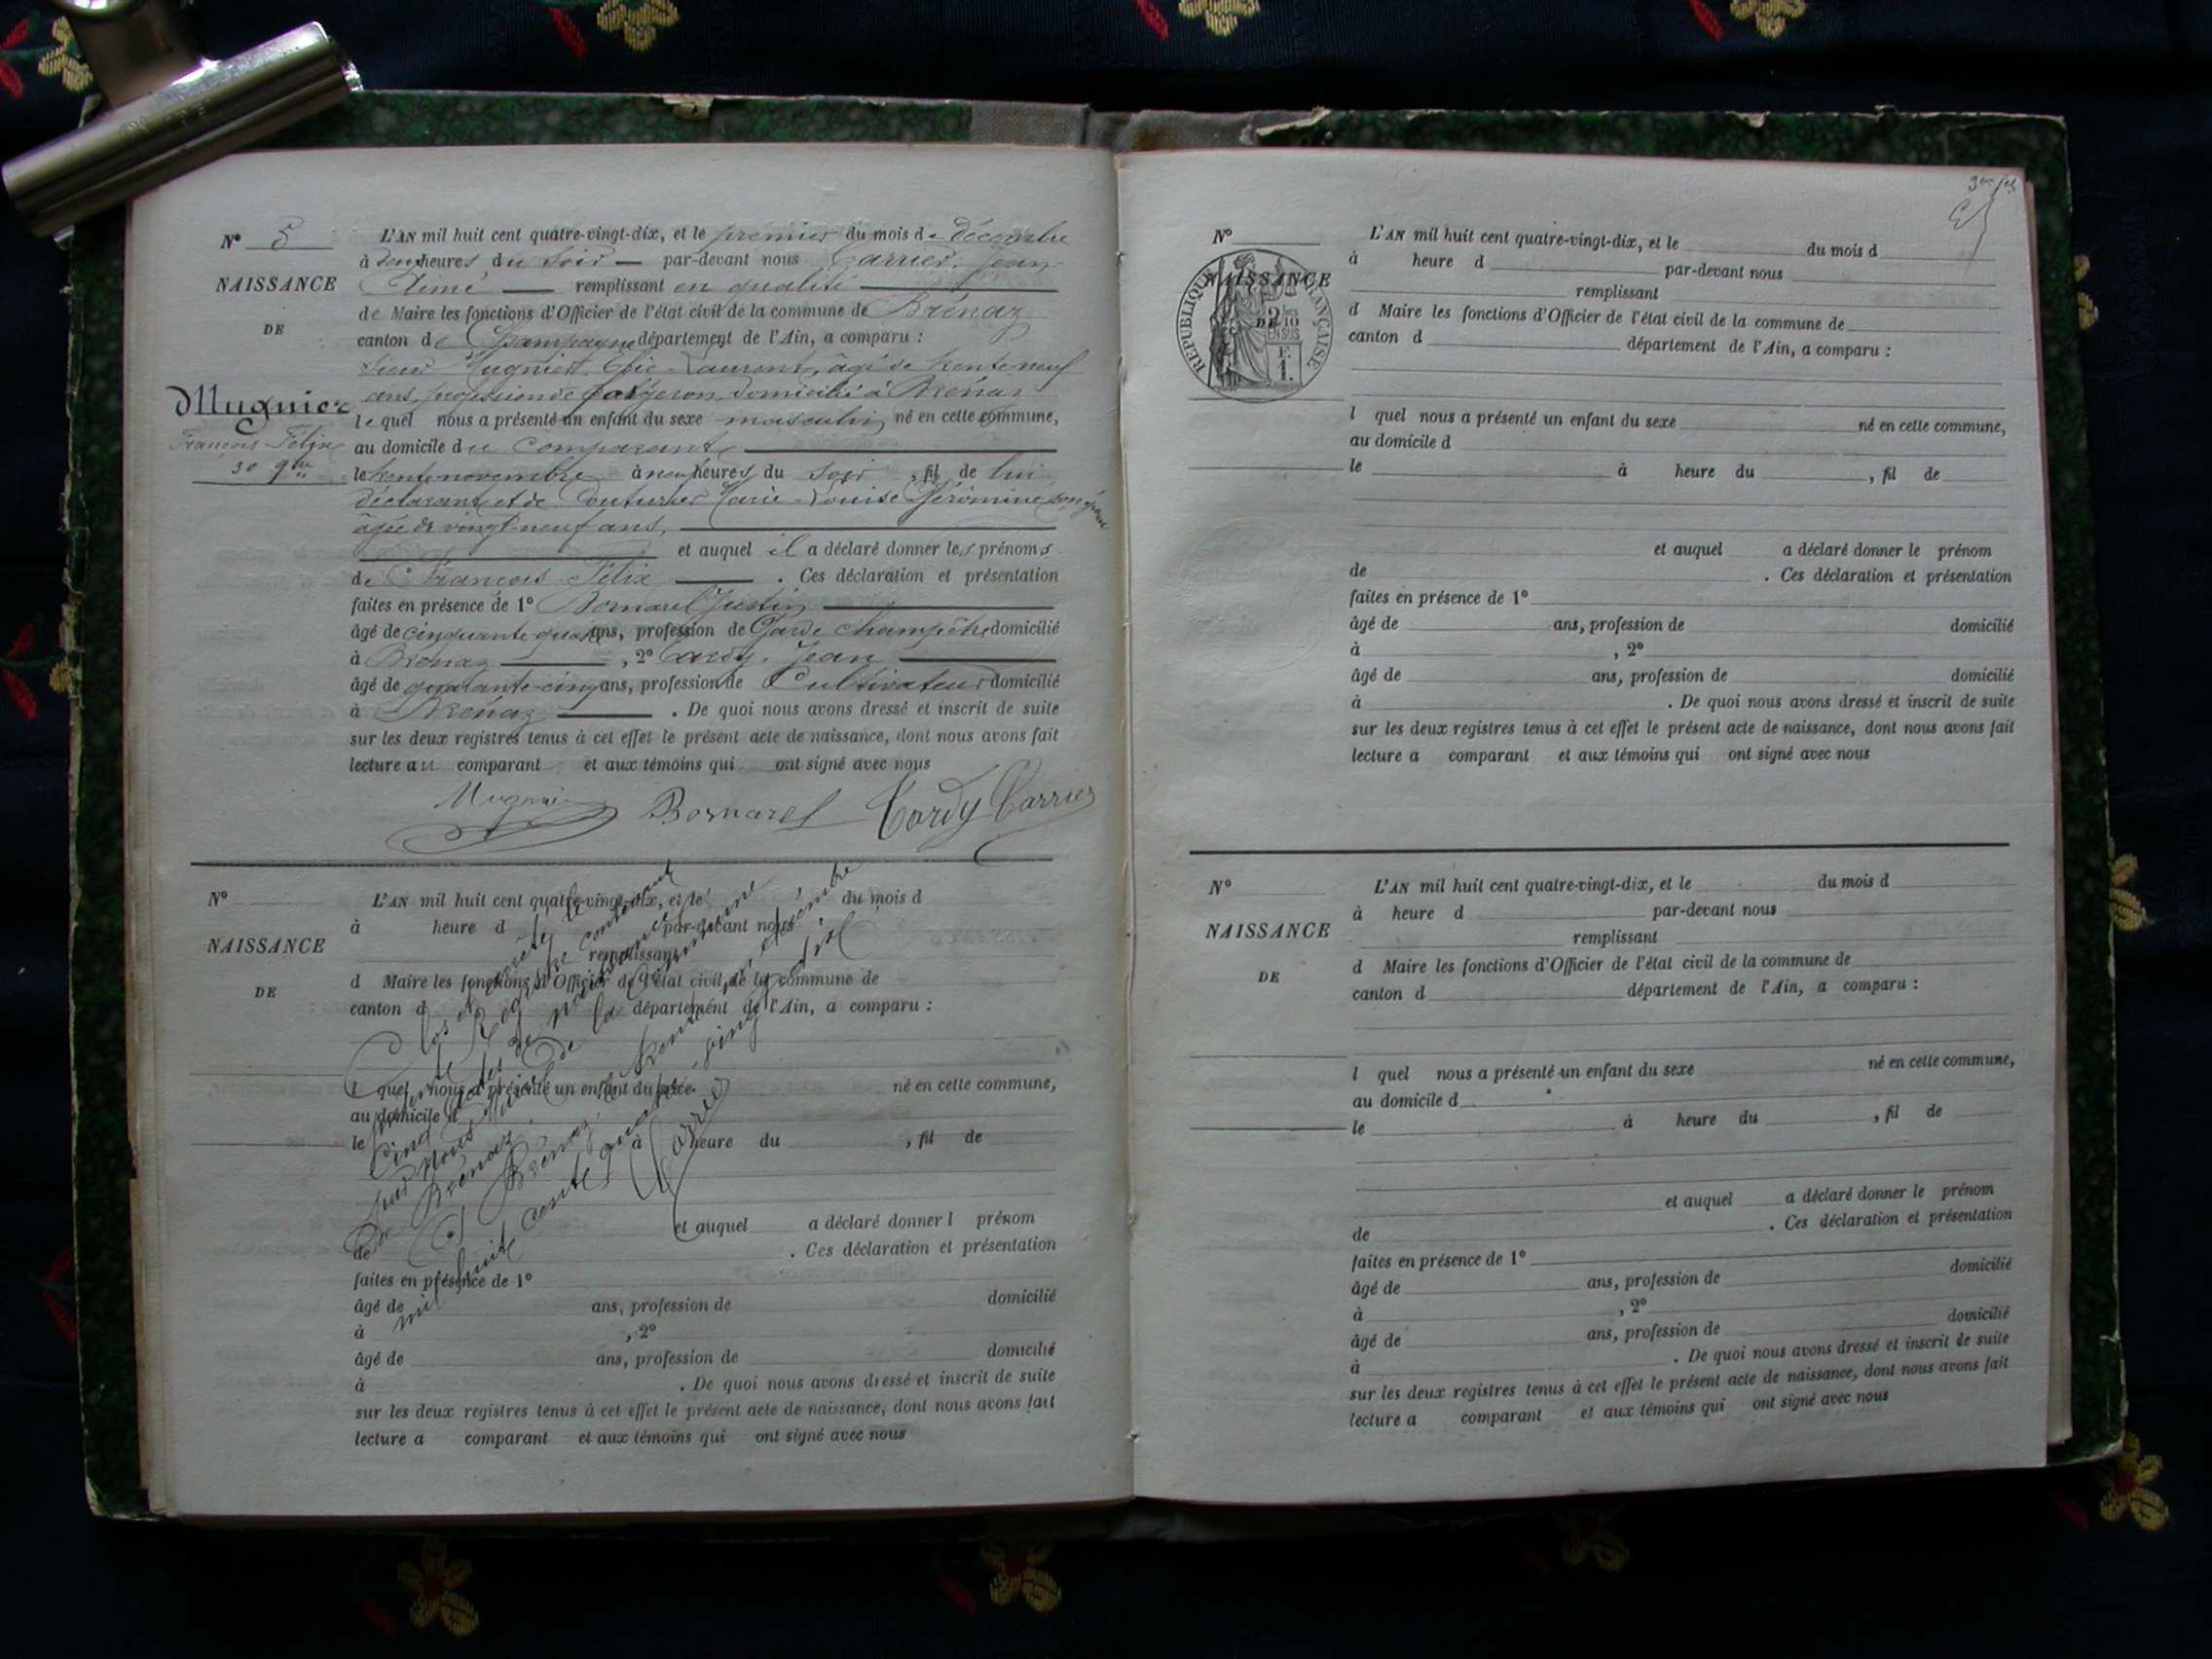 N° 5
NAISSANCE
DE
Mugnier
François Félix
30 9bre
L'AN mil huit cent quatre-vingt-dix, et le premier du mois de décembre
à deux heures du soir par-devant nous Carrier, Jean
Aimé remplissant en qualité
de Maire les fonctions d'Officier de l'état civil de la commune de Brénaz
canton de Champagne département de l'Ain, a comparu :
sieur Mugnier Laurent, âgé de trente neuf
ans, profession de forgeron, domicilié à Brénaz
lequel nous a présenté un enfant du sexe masculin, né en cette commune,
au domicile du comparant
le trente novembre à neuf heures du soir, fils de lui
déclarant et de Couturier Marie-Louise Géromine son épouse
âgée de vingt-neuf ans,
et auquel il a déclaré donner les prénoms
de François Félix. Ces déclaration et présentation
faites en présence de 1° Bornarel Justin
âgé de cinquante quatre ans, profession de Garde champêtre domicilié
à Brénaz, 2° Cardy, Jean
âgé de quarante-cinq ans, profession de Cultivateur domicilié
à Brénaz. De quoi nous avons dressé et inscrit de suite
sur les deux registres tenus à cet effet le présent acte de naissance, dont nous avons fait
lecture au comparant et aux témoins qui ont signé avec nous
Mugnier Bornarel Cardy Carrier
N°
NAISSANCE
DE
L'AN mil huit cent quatre-vingt-dix, et le du mois d
à heure d par-devant nous
remplissant
d Maire les fonctions d'Officier de l'état civil de la commune de
canton d département de l'Ain, a comparu :
l quel nous a présenté un enfant du sexe né en cette commune,
au domicile d
le à heure du , fil de
et auquel a déclaré donner l prénom
de . Ces déclaration et présentation
faites en présence de 1°
âgé de ans, profession de domicilié
à , 2°
âgé de ans, profession de domicilié
à . De quoi nous avons dressé et inscrit de suite
sur les deux registres tenus à cet effet le présent acte de naissance, dont nous avons fait
lecture a comparant et aux témoins qui ont signé avec nous
Clos et arrêté le
Registre contenant
cinq actes de naissance
par nous Maire de la commune
de Brénaz.
A Brénaz, le trente un décembre
mil huit cent quatre-vingt dix
Carrier
3em fet
N°
NAISSANCE
DE
REPUBLIQUE FRANÇAISE
2/10
EN SUS
F.
1.
L'AN mil huit cent quatre-vingt-dix, et le du mois d
à heure d par-devant nous
remplissant
d Maire les fonctions d'Officier de l'état civil de la commune de
canton d département de l'Ain, a comparu :
l quel nous a présenté un enfant du sexe né en cette commune,
au domicile d
le à heure du , fil de
et auquel a déclaré donner le prénom
de . Ces déclaration et présentation
faites en présence de 1°
âgé de ans, profession de domicilié
à , 2°
âgé de ans, profession de domicilié
à . De quoi nous avons dressé et inscrit de suite
sur les deux registres tenus à cet effet le présent acte de naissance, dont nous avons fait
lecture a comparant et aux témoins qui ont signé avec nous
N°
NAISSANCE
DE
L'AN mil huit cent quatre-vingt-dix, et le du mois d
à heure d par-devant nous
remplissant
d Maire les fonctions d'Officier de l'état civil de la commune de
canton d département de l'Ain, a comparu :
l quel nous a présenté un enfant du sexe né en cette commune,
au domicile d
le à heure du , fil de
et auquel a déclaré donner le prénom
de . Ces déclaration et présentation
faites en présence de 1°
âgé de ans, profession de domicilié
à , 2°
âgé de ans, profession de domicilié
à . De quoi nous avons dressé et inscrit de suite
sur les deux registres tenus à cet effet le présent acte de naissance, dont nous avons fait
lecture a comparant et aux témoins qui ont signé avec nous